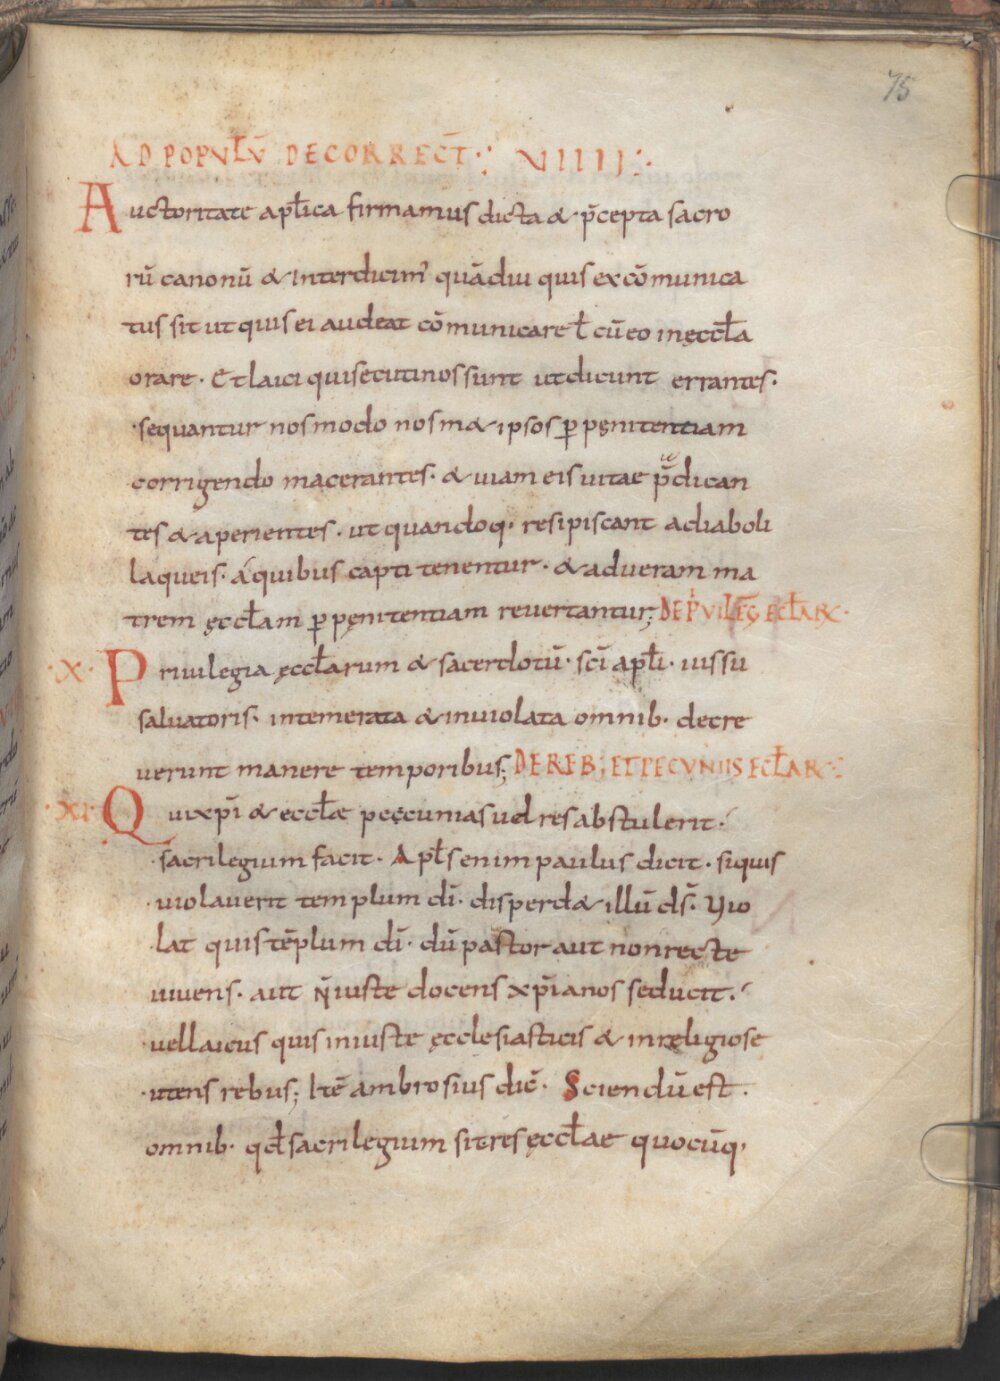 75
AD POPVLŪ DE CORRECT̄ VIIII
Auctoritate apƚica firmamus dicta & p̄cepta sacro
rū canonū & interdicim' quādiu quis excōmunica
tus sit ut quis ei audeat cōmunicare ƚ cū eo in ęccƚa
orare · Et laici qui secuti nos sunt ut dicunt errantes ·
sequantur nos modo nosm& ipsos ꝑ pęnitentiam
corrigendo macerantes · & uiam eis uitae p̄dican
tes & aperientes · ut quandoq · resipiscant a diaboli
laqueis · a quibus capti tenentur · & ad ueram ma
trem ęccƚam ꝑ pęnitentiam reuertantur; DE PVILEG ECƚAR ·
· X · Priuilegia ęccƚarum & sacerdotū · sc̄i apƚi · iussu
saluatoris · intemerata & inuiolata omnib · decre
uerunt manere temporibus; DE REB; ET PECVNIIS ECƚAR
· XI · Qui xp̄i & eccƚae pęcunias uel res abstulerit ·
sacrilegium facit · Apƚs enim paulus dicit · si quis
uiolauerit templum dī · disperd& illū ds̄ · Uio
lat quis tēplum dī · dū pastor aut non recte
uiuens · aut n̄ iuste docens xp̄ianos seducit ·
uel laicus quis iniuste ęcclesiasticis & inreligiose
utens rebus; Itē ambrosius dic̄ · Sciendū est ·
omnib · qđ sacrilegium sit res ęccƚae quocūq ·